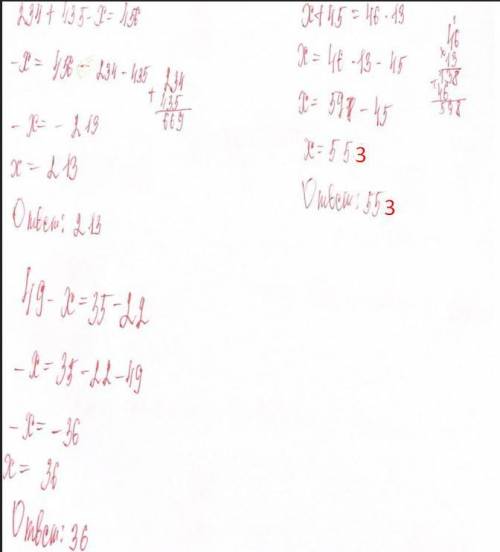 234 + 435 - x = 456
-x = 456 - 234 - 435
234
+ 435
669
- x = - 213
x = 213
Ответ: 213
49 - x = 35 - 22
- x = 35 - 22 - 49
- x = - 36
x = 36
Ответ: 36
x + 45 = 46 · 13
x = 46 · 13 - 45
46
x 13
138
+ 46
598
x = 598 - 45
x = 553
Ответ: 553